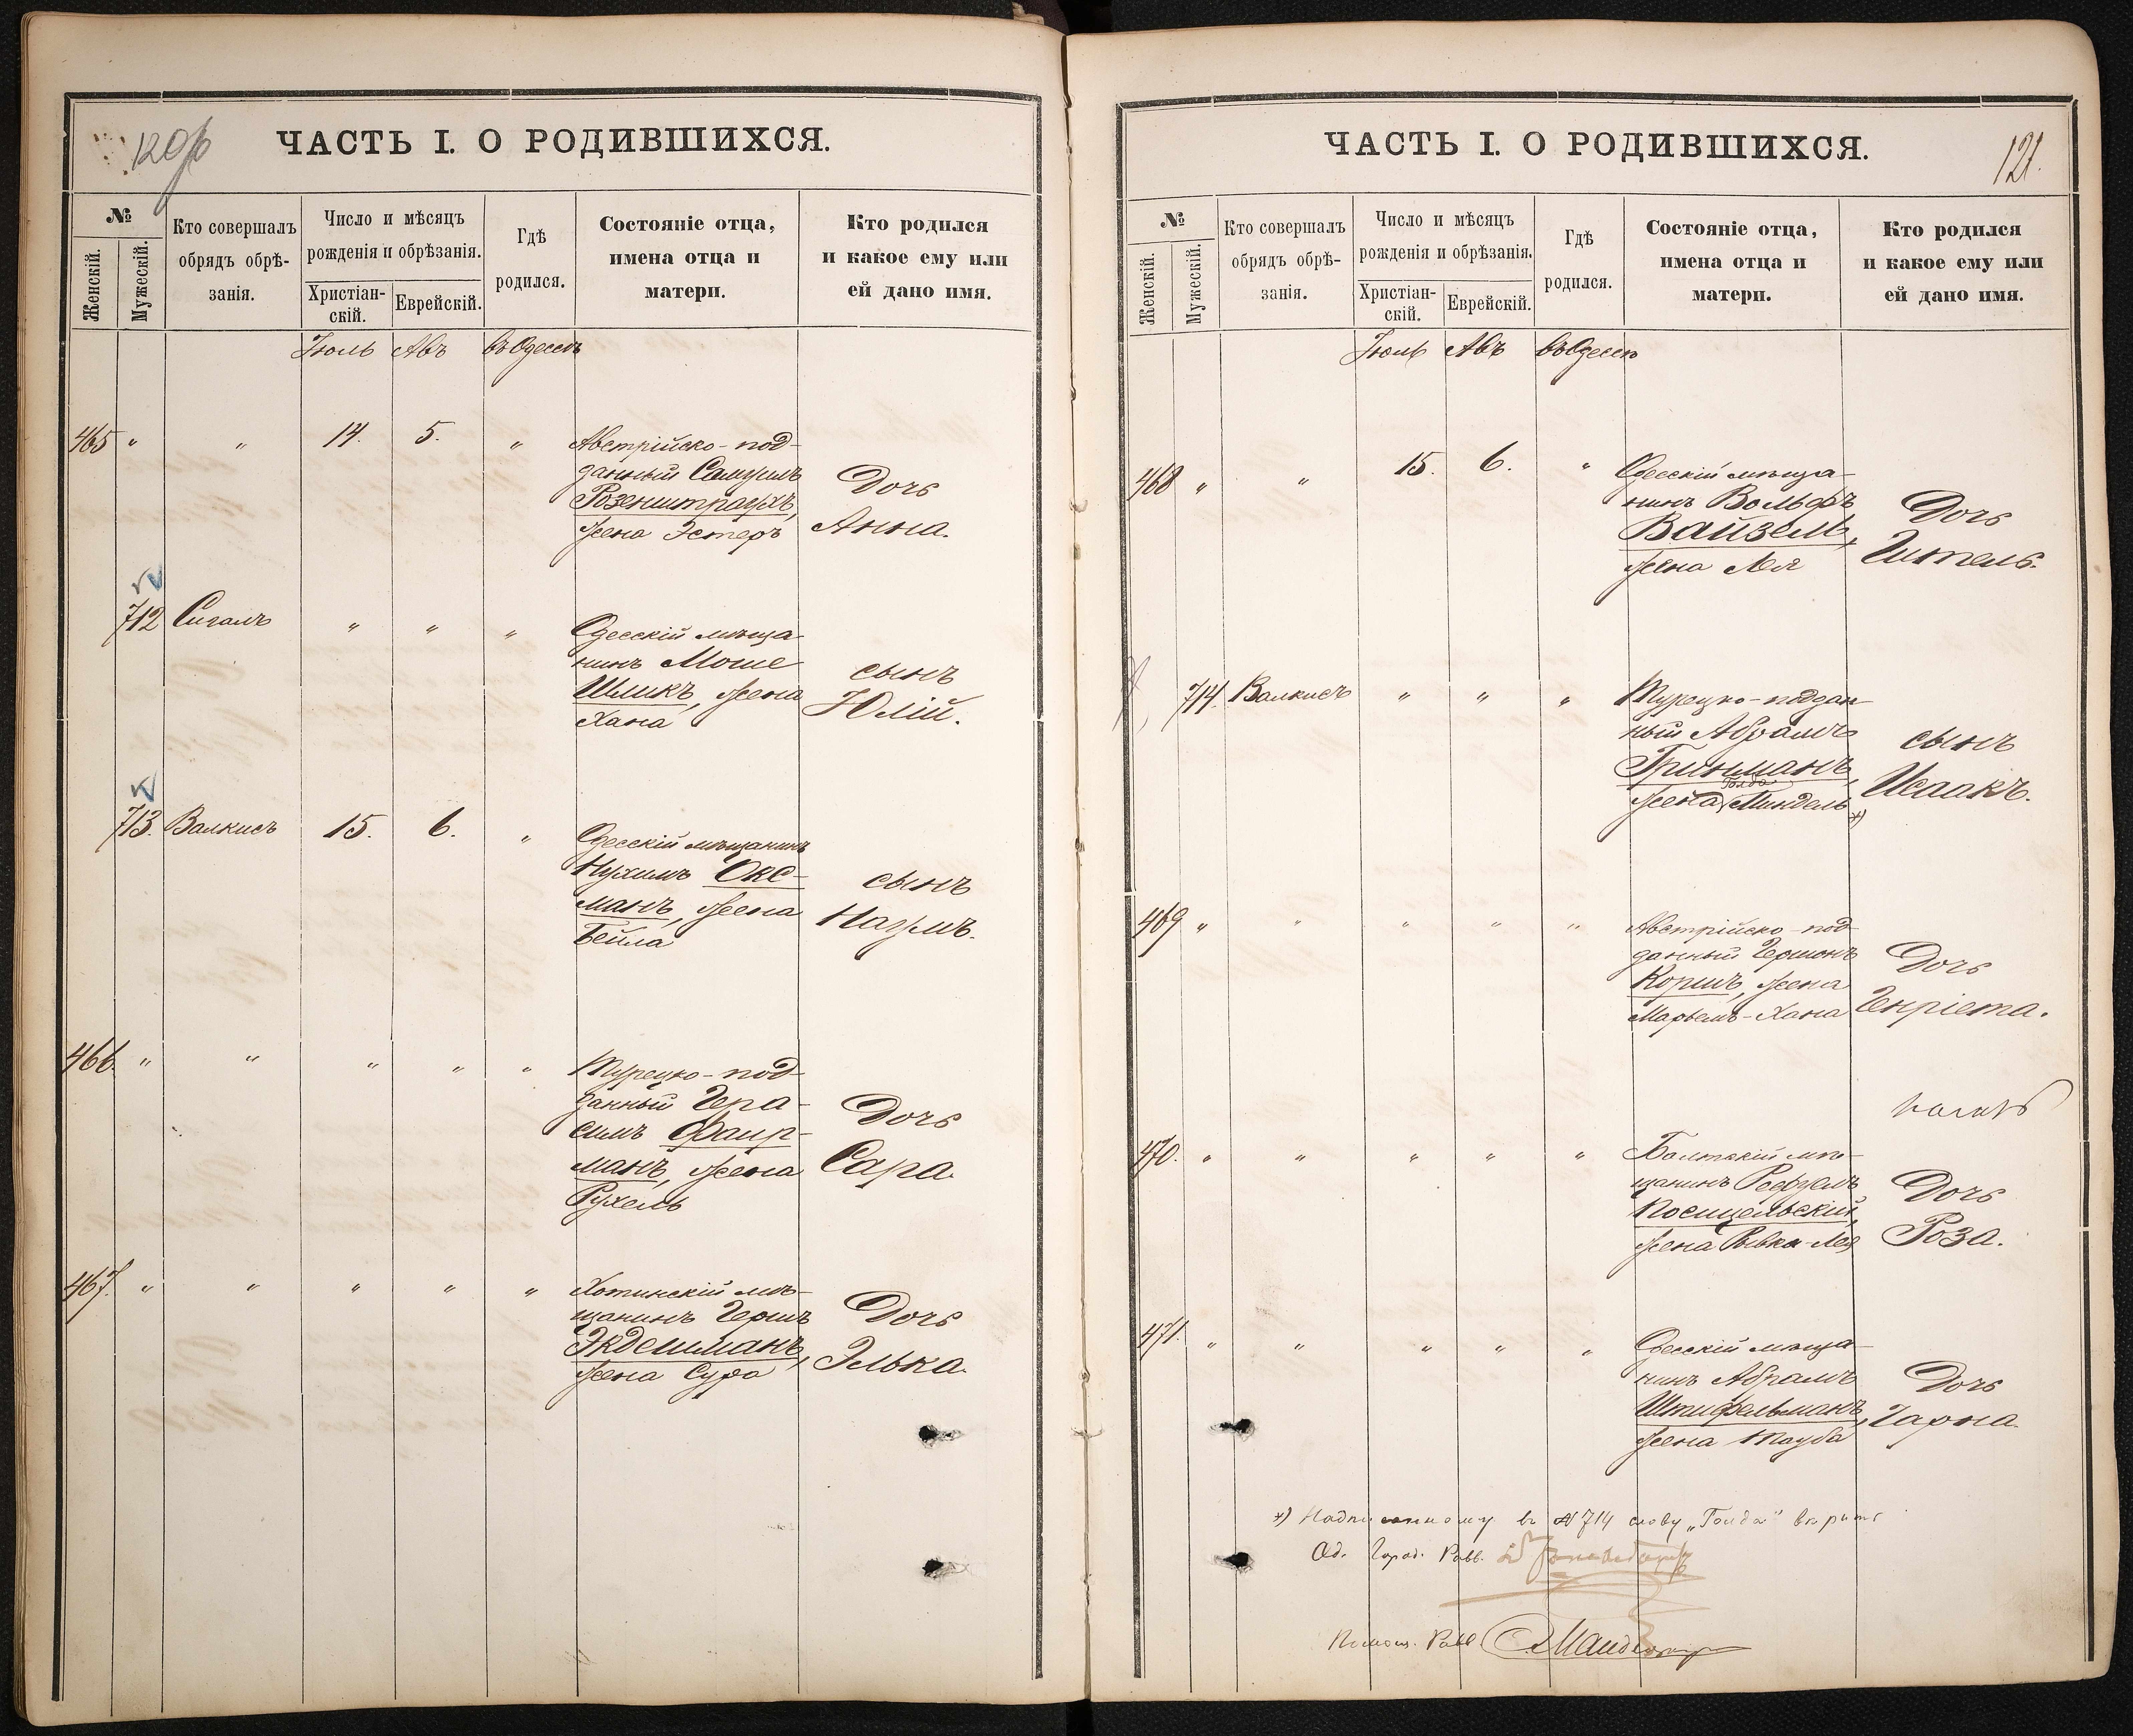 120об
ЧАСТЬ I. О РОДИВШИХСЯ.
№
Женскій.
Мужескій.
Кто совершалъ
обрядъ обрѣ-
занія.
Число и мѣсяцъ
рожденія и обрѣзанія.
Христіан-
скій.
Еврейскій.
Гдѣ
родился.
Состояніе отца,
имена отца и
матери.
Кто родился
и какое ему или
ей дано имя.
Іюль Авъ въ Одессѣ
465 " " 14. 5. " Австрійско-под-
данный Самуилъ
Розенштраухъ,
жена Эстеръ
Дочь
Анна.
712 Сигалъ " " " Одесскій мѣща-
нинъ Моше
Шликъ, жена
Хана
сынъ
Юлій.
713. Валкисъ 15. 6. " Одесскій мѣщанинъ
Нухимъ Окс-
манъ, жена
Бейла
сынъ
Наумъ.
466. " " " " " Турецко-под-
данный Гера-
симъ Фаир-
манъ, жена
Рухель
Дочь
Сара.
467. " " " " " Хотинскій мѣ-
щанинъ Гершъ
Экдешманъ,
жена Сура
Дочь
Элька.
121.
ЧАСТЬ I. О РОДИВШИХСЯ.
№
Женскій.
Мужескій.
Кто совершалъ
обрядъ обрѣ-
занія.
Число и мѣсяцъ
рожденія и обрѣзанія.
Христіан-
скій.
Еврейскій.
Гдѣ
родился.
Состояніе отца,
имена отца и
матери.
Кто родился
и какое ему или
ей дано имя.
Іюль Авъ въ Одессѣ
468 " " 15. 6. " Одесскій мѣща-
нинъ Вольфъ
Вайзель,
жена Лея
Дочь
Гитель.
714. Валкисъ " " " Турецко-поддан-
ный Абрамъ
Гринманъ,
Голда
жена Миндель *)
сынъ
Исаакъ.
469 " " " " " Австрійско-под-
данный Гершонъ
Коршъ, жена
Марьемъ-Хана
Дочь
Генріета.
470. " " " " " Балтскій мѣ-
щанинъ Рефуель
Посицельскій,
жена Ривка-Лея
Дочь
Роза.
471. " " " " " Одесскій мѣща-
нинъ Абрамъ
Штифельманъ,
жена Тауба
Дочь
Чарна.
*) Надписанному въ № 714 слову „Голда" вѣрить
Од. Город. Равв.
Помощ. Равв.